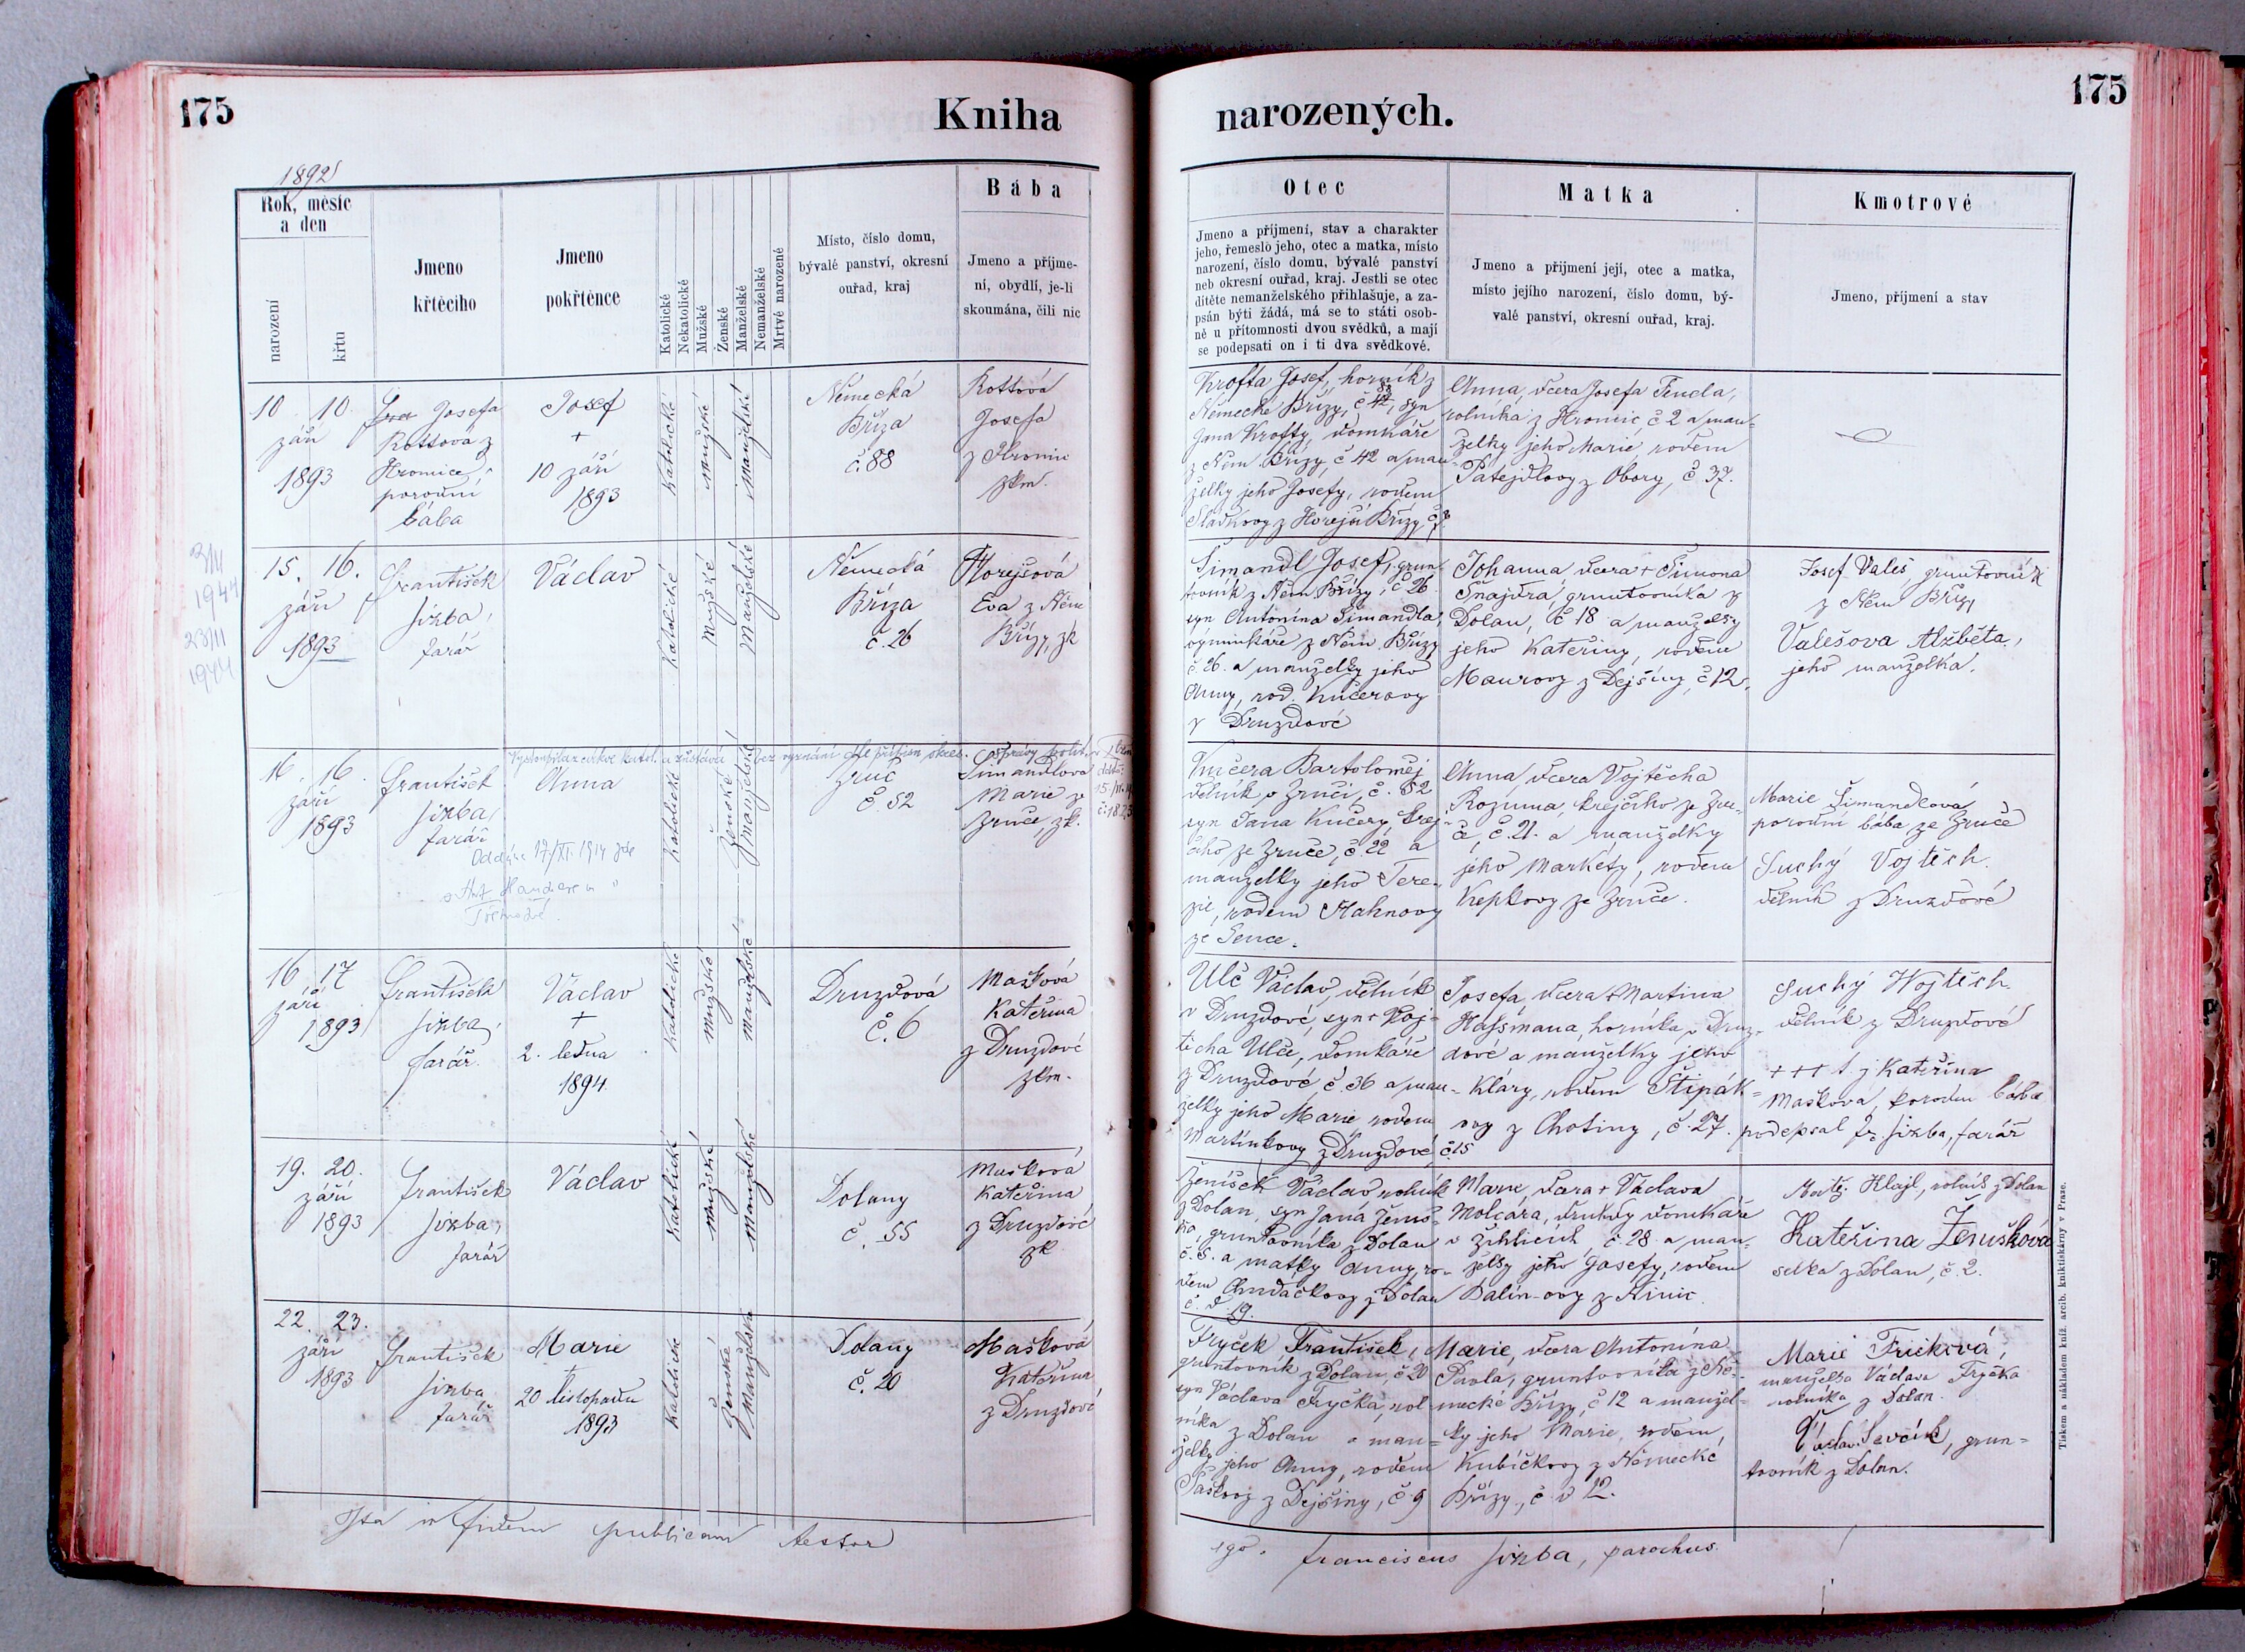 175
Kniha
1892
Rok, měsíc
a den
narození
křtu
Jmeno
křtěcího
Jmeno
pokřtěnce
Katolické
Nekatolické
Mužské
Ženské
Manželské
Nemanželské
Mrtvé narozené
Místo, číslo domu,
bývalé panství, okresní
ouřad, kraj
Bába
Jmeno a příjme-
ní, obydlí, je-li
skoumána, čili nic
10. 10.
září
1893
Josefa
Rottová z
Hromice,
porodní
bába
Josef
+
10 září
1893
Katolické
Mužské
Manželské
Německá
Bříza
č. 88
Rottová
Josefa
z Hromic
zkm.
1944
23/11
1944
15. 16.
září
1893
František
Jizba,
farář
Václav
Katolické
Mužské
Manželské
Německá
Bříza
č. 26
Horejšová
Eva z Něm
Břízy, zk
16. 16.
září
1893
František
Jizba,
farář
Anna
Oddána 17/XI. 1914 zde
Katolické
Ženské
Manželské
Zruč
č. 52
Šimandlová
Marie ze
Zruče, zk.
16 17
září
1893
František
Jizba,
farář.
Václav
+
2. ledna
1894
Katolické
Mužské
Manželské
Druzdová
č. 6
Mašková
Kateřina
z Druzdové
zkm.
19. 20.
září
1893
František
Jizba,
farář
Václav
Katolické
Mužské
Manželské
Dolany
č. 55
Mašková
Kateřina
z Druzdové
zk
22. 23.
září
1893
František
Jizba
farář
Marie
+
20 listopadu
1893
Katolické
Ženské
Manželské
Dolany
č. 20
Mašková
Kateřina
z Druzdové
Ita in fidem publicam testor
175
narozených.
Otec
Jmeno a příjmení, stav a charakter
jeho, řemeslo jeho, otec a matka, místo
narození, číslo domu, bývalé panství
neb okresní ouřad, kraj. Jestli se otec
dítěte nemanželského přihlašuje, a za-
psán býti žádá, má se to státi osob-
ně u přítomnosti dvou svědků, a mají
se podepsati on i ti dva svědkové.
Matka
Jmeno a přijmení její, otec a matka,
místo jejího narození, číslo domu, bý-
valé panství, okresní ouřad, kraj.
Kmotrové
Jmeno, příjmení a stav
Krofta Josef, horník z
Německé Břízy, č 42, syn
Jana Krofty, domkáře
z Něm. Břízy, č 42 a man-
želky jeho Josefy, rodem
Sladkovy z Horejší Břízy, č
Anna, dcera Josefa Fencla,
rolníka z Hromic, č 2 a man-
želky jeho Marie, rodem
Patejdlovy z Obory, č 37.
Šimandl Josef, grun-
tovník z Něm Břízy, č 26
syn Antonína Šimandla,
výminkáře z Něm. Břízy
č 26. a manželky jeho
Anny, rod. Kučerovy
z Druzdové
Johanna dcera + Šimona
Šnajdra, gruntovníka z
Dolan, č 18 a manželky
jeho Kateřiny, rodem
Maurovy z Dejšiny, č 12.
Josef Valeš, gruntovník
z Něm Břízy
Valešova Alžběta,
jeho manželka.
Kučera Bartoloměj
dělník v Zruči, č. 52
syn Jana Kučery, krej-
čího ze Zruče, č 22 a
manželky jeho Tere-
zie, rodem Hahnovy
ze Sence.
Anna, dcera Vojtěcha
Rozuma, krejčího ze Zru-
če, č. 21. a manželky
jeho Markéty, rodem
Kepkovy ze Zruče.
Marie Šimandlová
porodní bába ze Zruče
Suchý Vojtěch.
dělník z Druzdové
Ulč Václav, dělník
v Druzdové, syn + Voj-
těcha Ulče, domkáře
z Druzdové č. 36 a man-
želky jeho Marie rodem
Martínkovy z Druzdové, č 15
Josefa, dcera + Martina
Hassmana, horníka v Druz-
dové a manželky jeho
Kláry, rodem Štipák-
ovy z Chotiny, č. 27.
Suchý Vojtěch.
dělník z Druzdové
+++ t. j Kateřina
Mašková, porodní bába
podepsal Fr. Jizba, farář
Ženíšek Václav, rolník
z Dolan, syn Jana Ženíš-
ka, gruntovníka z Dolan
č. 5. a matky Anny, ro-
dem Chudáčkovy z Dolan
č. d 19.
Marie, dcera + Václava
Molcara, druhdy domkáře
v Žichlicích č. 28 a man-
želky jeho Josefy, rodem
Balín-ovy z
Matěj Hlajl, rolník z Dolan
Kateřina Ženíšková
selka z Dolan, č. 2.
Fryček František,
gruntovník z Dolan, č 20
syn Václava Fryčka, rol-
níka z Dolan a man-
želky jeho Anny, rodem
Paškovy z Dejšiny, č. 9
Marie, dcera Antonína
Pavla, gruntovníka z Ně-
mecké Břízy, č 12 a manžel-
ky jeho Marie, rodem,
Kubíčkovy z Německé
Břízy, č. d 12.
Marie Fričková,
manželka Václava Fryčka
rolníka z Dolan.
Václav Ševčík, grun-
tovník z Dolan.
ego. Franciscus Jizba, parochus.
Tiskem a nákladem kníž. arcib. knihtiskárny v Praze.